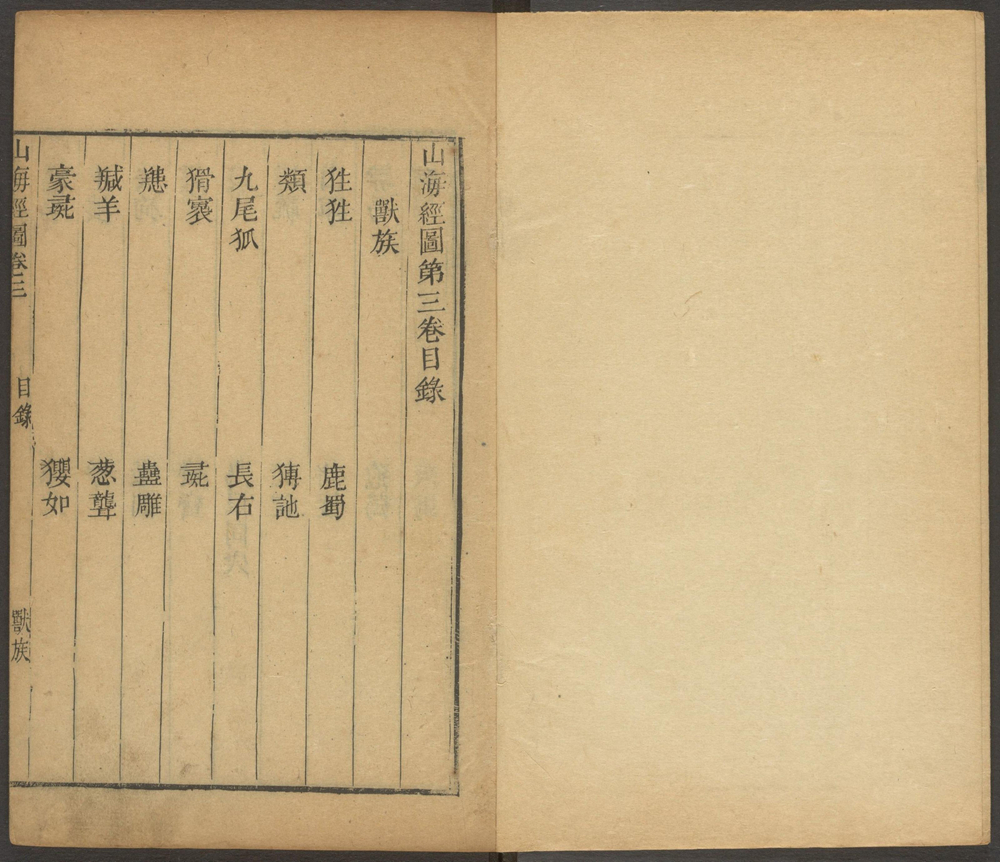 山海經圖第三卷目錄
獸族
狌狌　鹿蜀
類　猼訑
九尾狐　長右
猾褢　彘
䍺　蠱雕
羬羊　葱聾
豪彘　玃如
山海經圖卷三　目錄　獸族